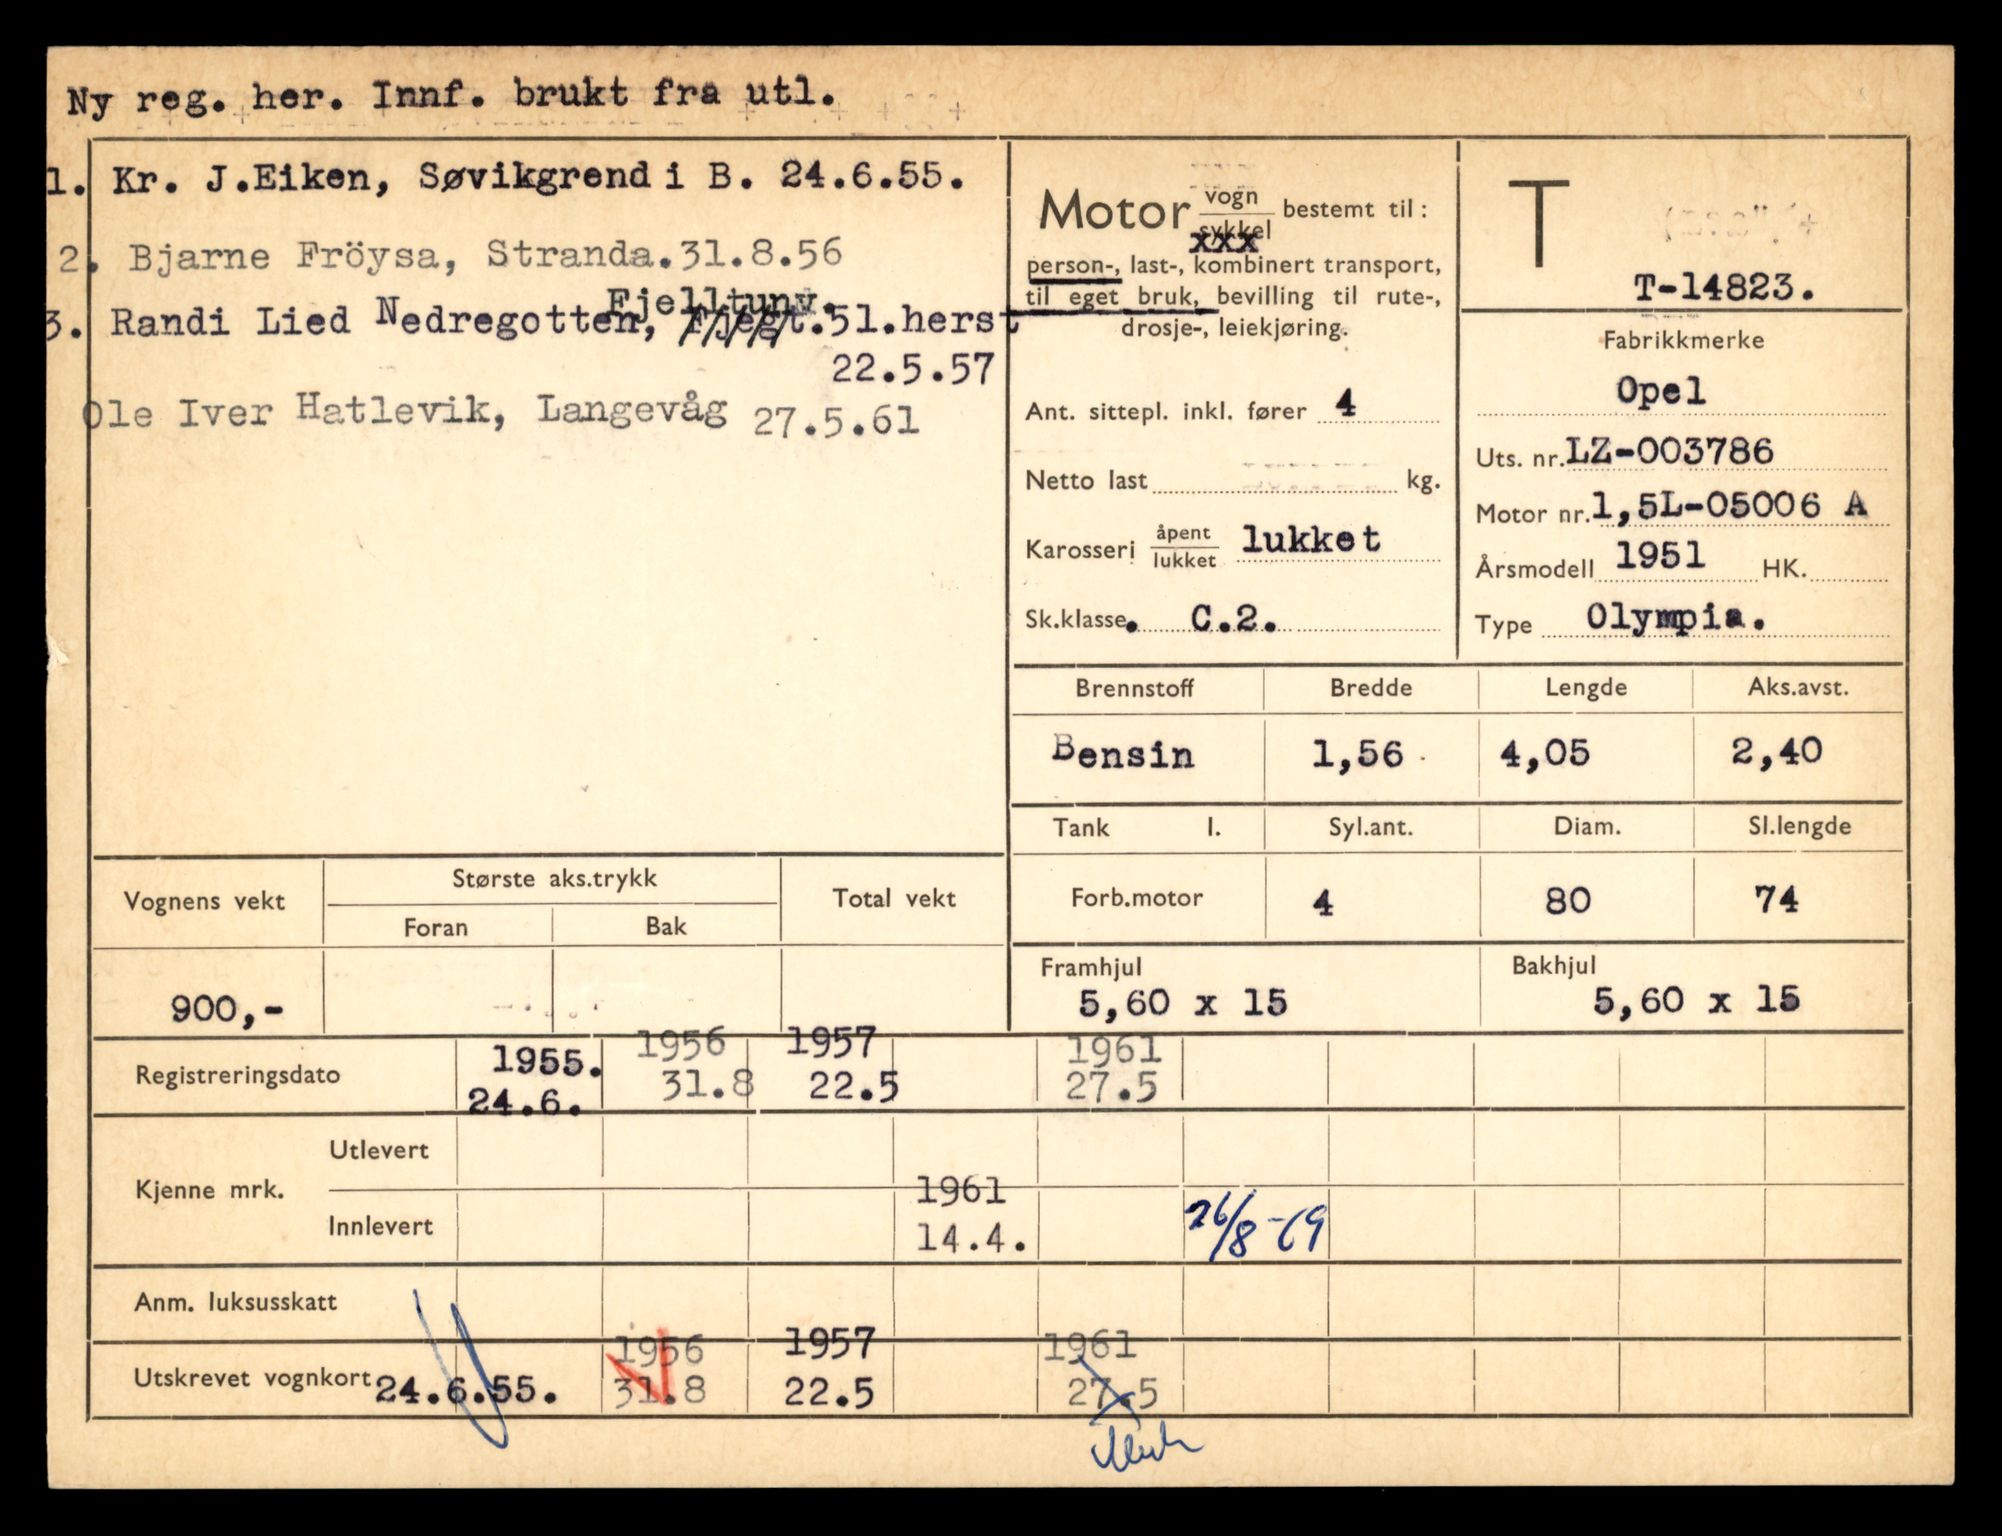 Ny reg. her. Innf. brukt fra utl.
1. Kr. J.Eiken, Søvikgrend i B. 24.6.55.
2. Bjarne Fröysa, Stranda.31.8.56
Fjelltunv.
3. Randi Lied Nedregotten, Fjegt.51.herst
22.5.57
Ole Iver Hatlevik, Langevåg 27.5.61
Motor vogn/sykkel bestemt til:
xxx
person-, last-, kombinert transport,
til eget bruk, bevilling til rute-,
drosje-, leiekjøring.
Ant. sittepl. inkl. fører 4
Netto last kg.
Karosseri åpent/lukket lukket
Sk.klasse. C.2.
T
T-14823.
Fabrikkmerke
Opel
Uts. nr. LZ-003786
Motor nr. 1,5L-05006 A
Årsmodell 1951 HK.
Type Olympia.
Brennstoff Bredde Lengde Aks.avst.
Bensin 1,56 4,05 2,40
Tank l. Syl.ant. Diam. Sl.lengde
Forb.motor 4 80 74
Framhjul Bakhjul
5,60 x 15 5,60 x 15
Vognens vekt Største aks.trykk Total vekt
Foran Bak
900,-
1955. 1956 1957 1961
Registreringsdato 24.6. 31.8 22.5 27.5
Kjenne mrk. Utlevert
1961
Innlevert 14.4. 26/8-69
Anm. luksusskatt
1956 1957 1961
Utskrevet vognkort 24.6.55. 31.8 22.5 27.5